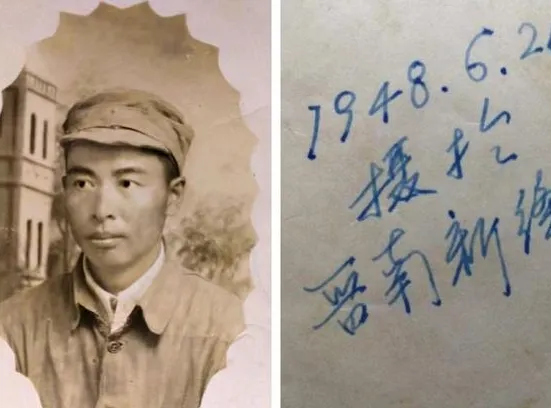 1948.6.2
摄於
晋南新绛